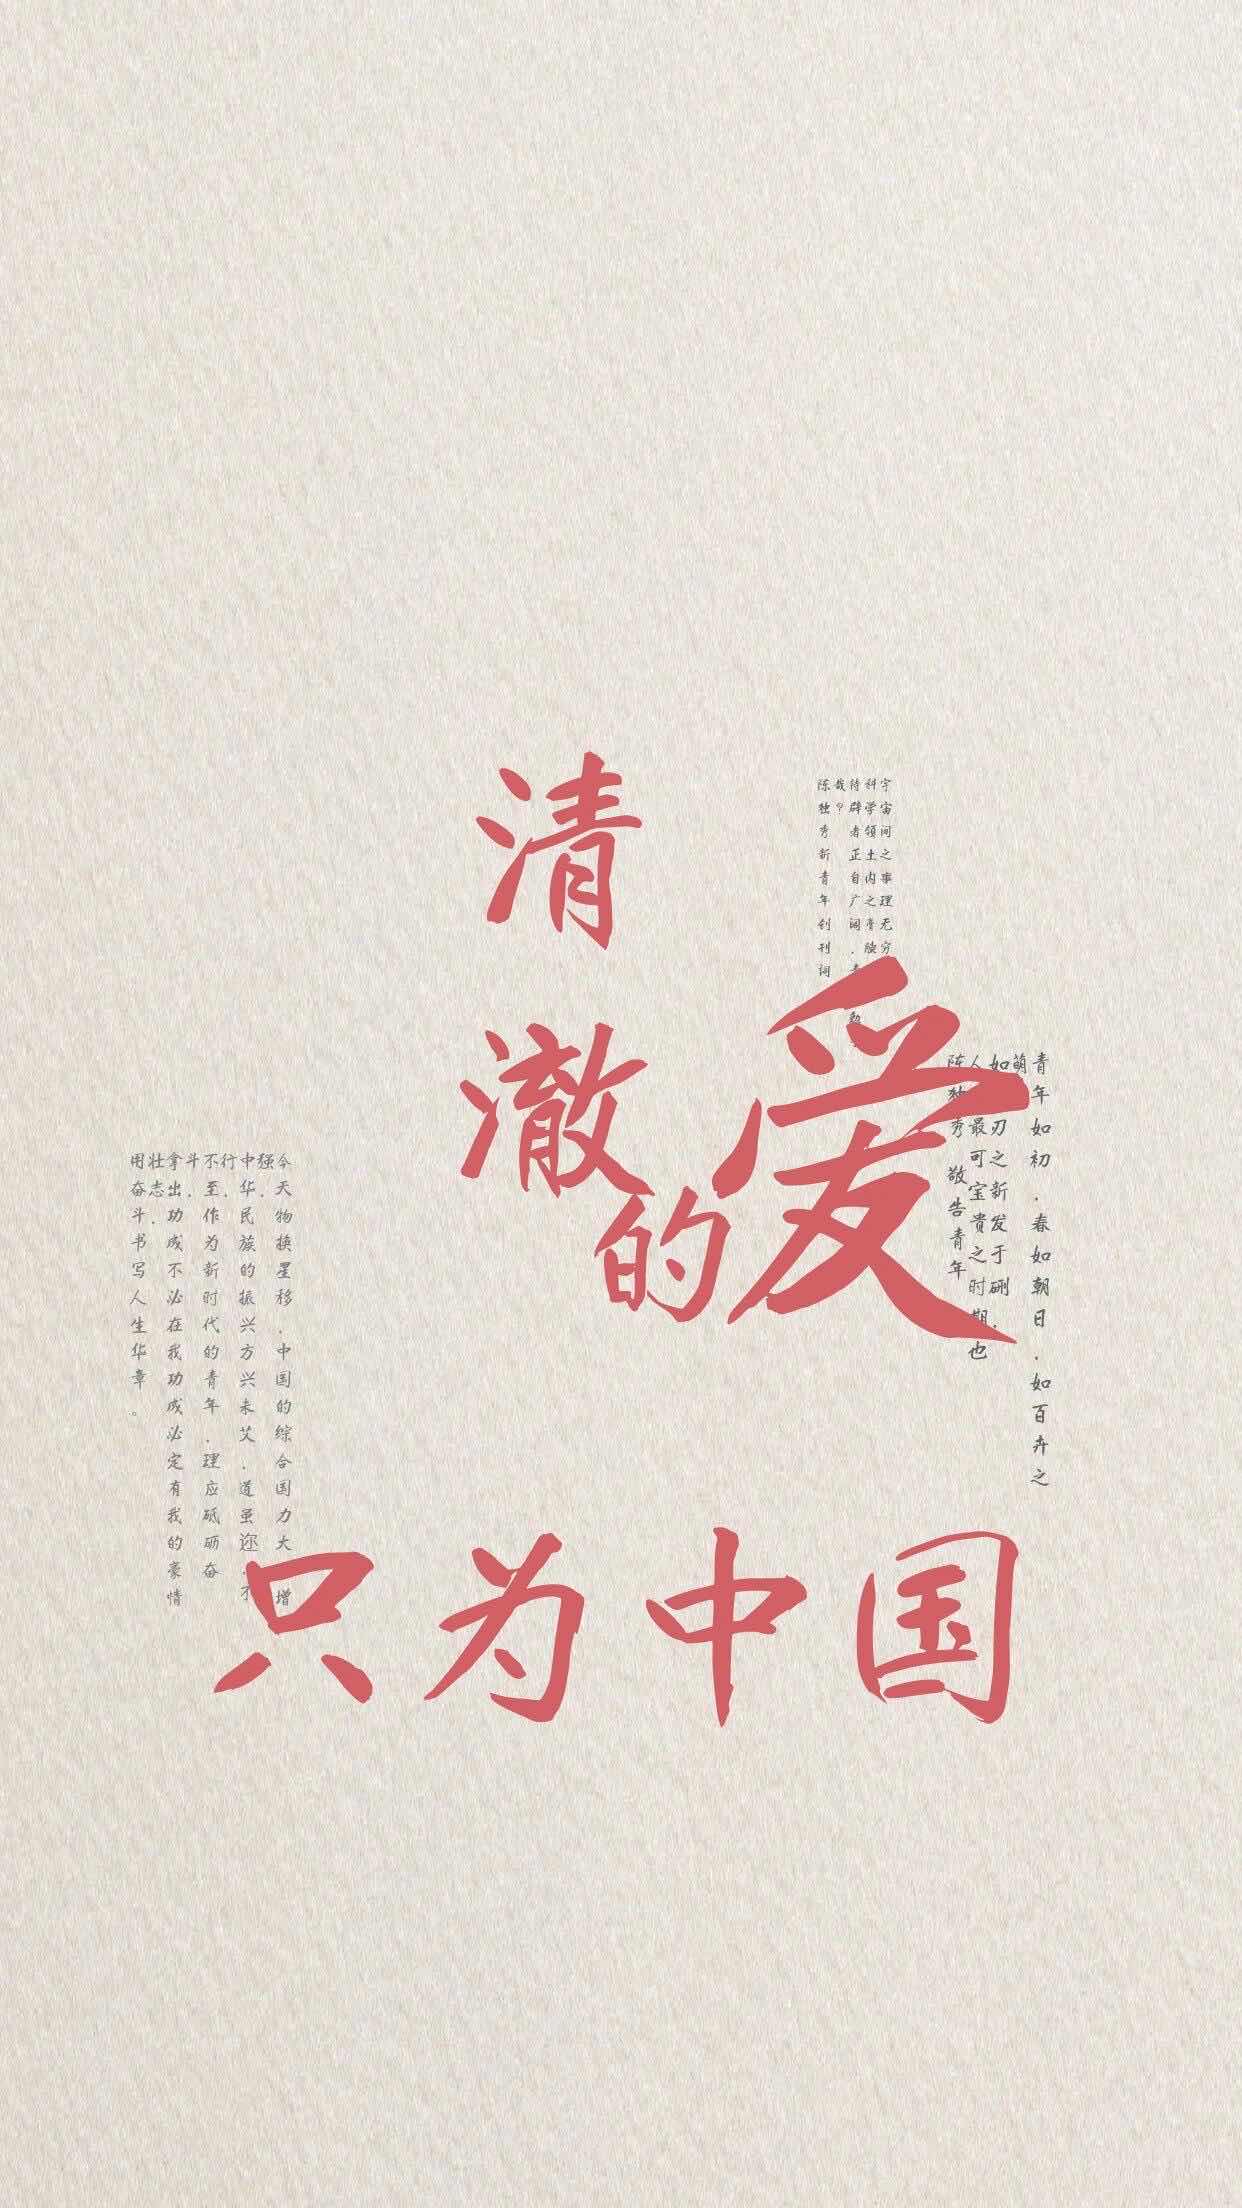 清
澈
的
爱
只为中国
宇宙间之事理无穷
科学领土内之膏腴
待辟者正自广阔,青勉
哉?
陈独秀新青年创刊词
青年如初,春如朝日,如百卉之
萌
如刃之新发于硎,
人最可宝贵之时期也
陈独秀 敬告青年
今天物换星移,中国的综合国力大增
强,
中华民族的振兴方兴未艾,道虽迩,不
行,
不至,作为新时代的青年,理应砥砺奋
斗,
拿出功成不必在我功成必定有我的豪情
壮志,
用奋斗书写人生华章。